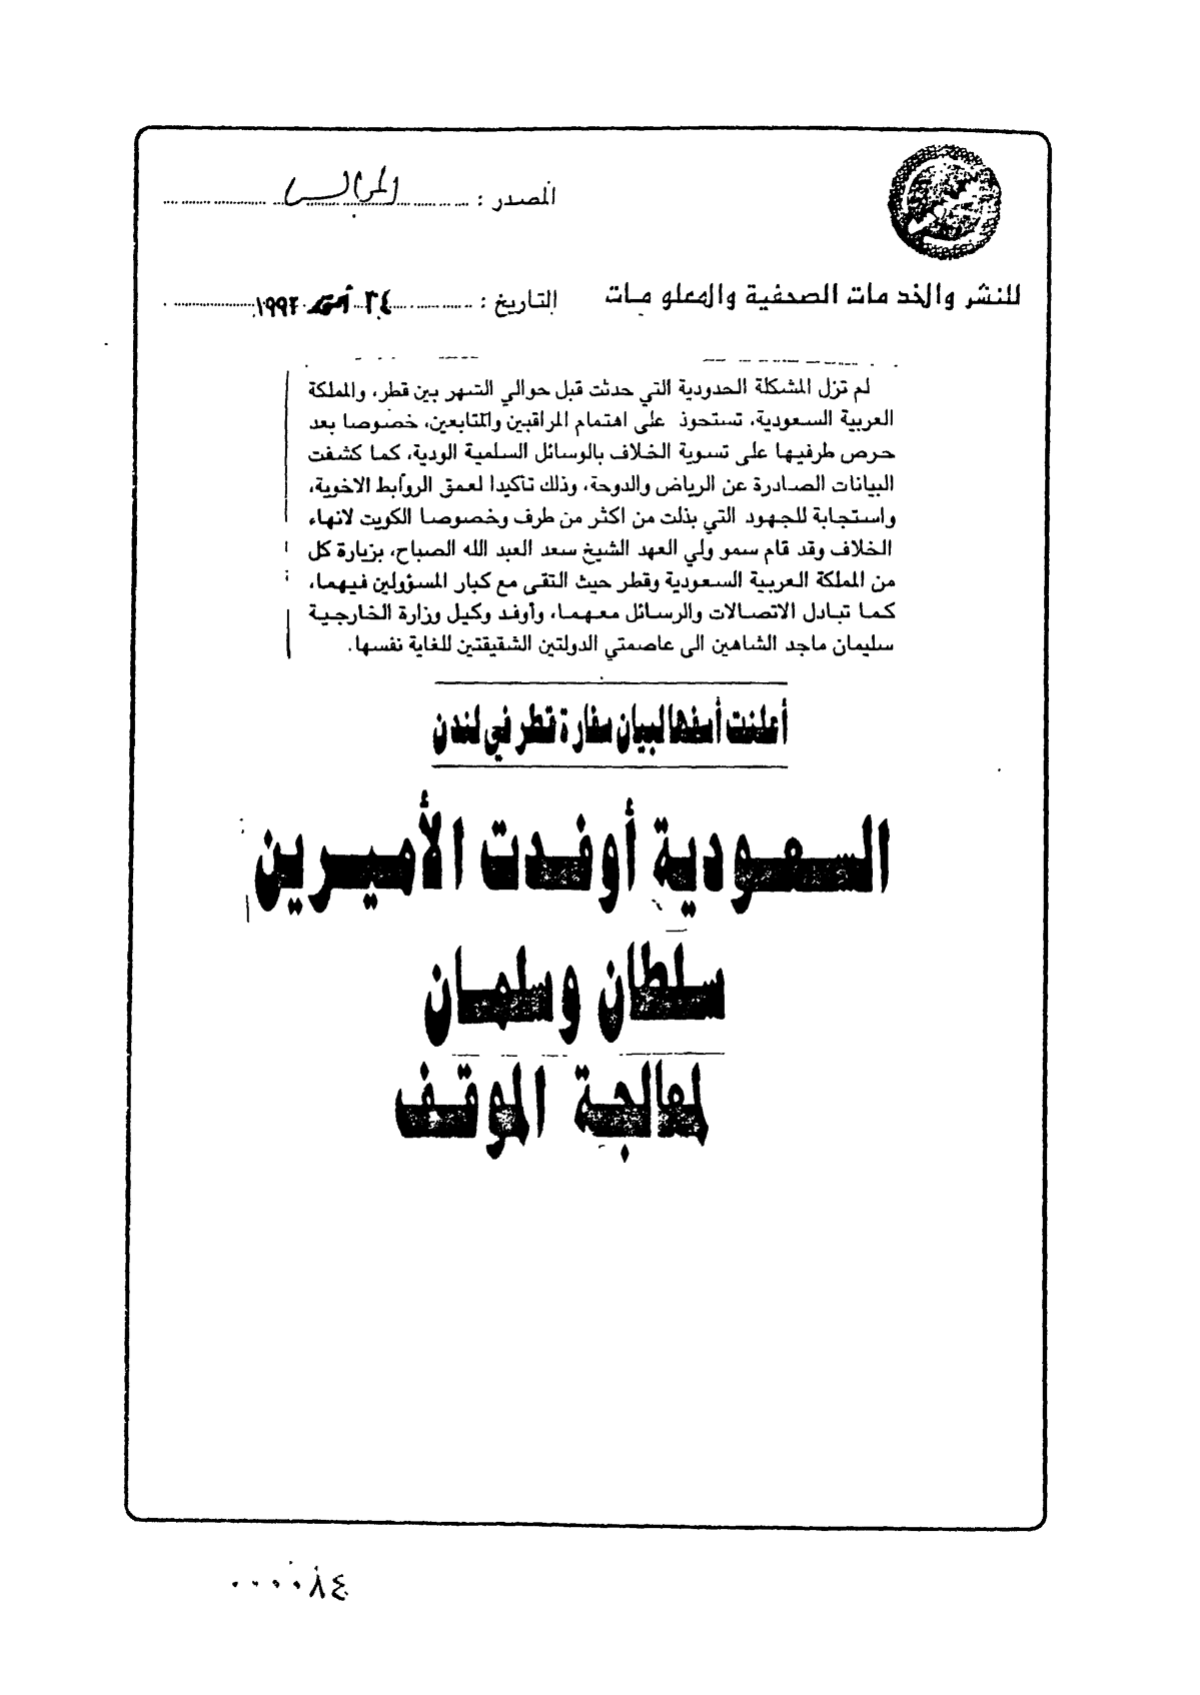 المصدر : المجالس
للنشر والخدمات الصحفية والمعلومات
التاريخ : ٢٤ أكتوبر ١٩٩٢
لم تزل المشكلة الحدودية التي حدثت قبل حوالي الشهر بين قطر، والمملكة
العربية السعودية، تستحوذ على اهتمام المراقبين والمتابعين، خصوصا بعد
حرص طرفيها على تسوية الخلاف بالوسائل السلمية الودية، كما كشفت
البيانات الصادرة عن الرياض والدوحة، وذلك تأكيدا لعمق الروابط الاخوية،
واستجابة للجهود التي بذلت من اكثر من طرف وخصوصا الكويت لانهاء
الخلاف وقد قام سمو ولي العهد الشيخ سعد العبد الله الصباح، بزيارة كل
من المملكة العربية السعودية وقطر حيث التقى مع كبار المسؤولين فيهما،
كما تبادل الاتصالات والرسائل معهما، وأوفد وكيل وزارة الخارجية
سليمان ماجد الشاهين الى عاصمتي الدولتين الشقيقتين للغاية نفسها.
أعلنت أسفها لبيان سفارة قطر في لندن
السعودية أوفدت الأميرين
سلطان وسلمان
لمعالجة الموقف
٠٠٠٠٨٤